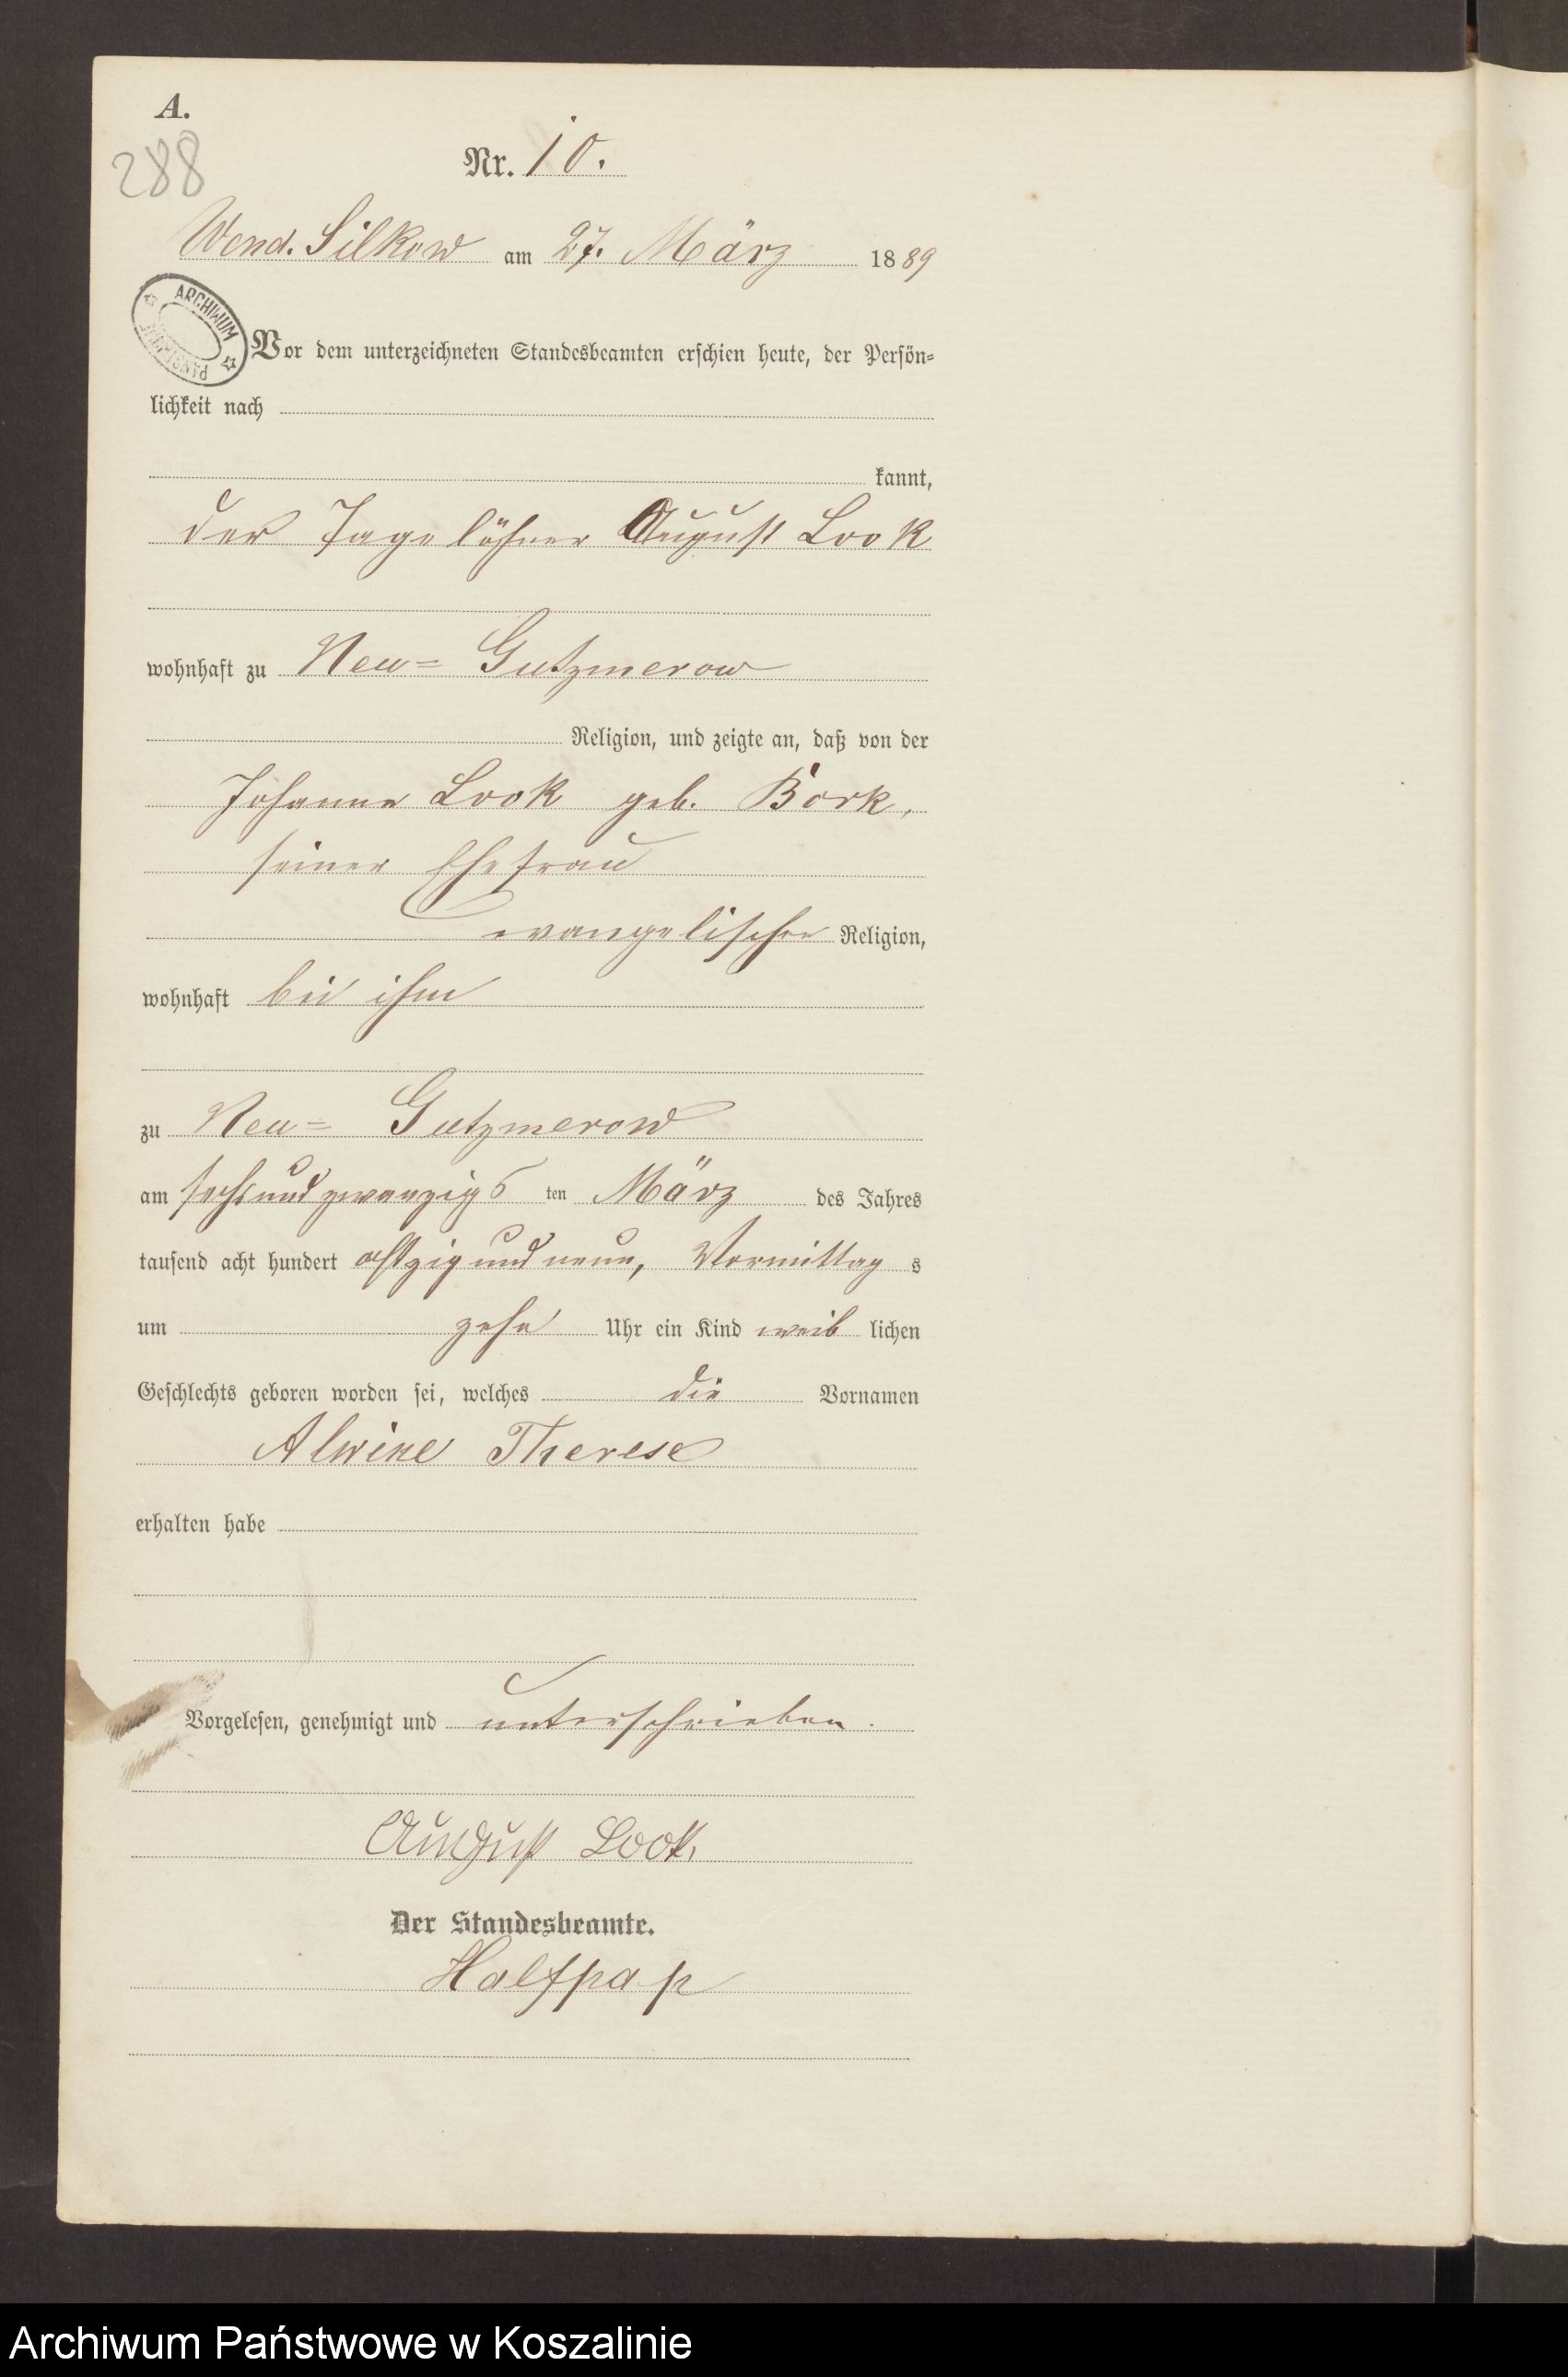 A.
288
Nr. 10.
Wend. Silkow am 27. März 1889
ARCHIWUM PAŃSTWOWE
Vor dem unterzeichneten Standesbeamten erschien heute, der Persön=
lichkeit nach
kannt,
der Tagelöhner August Look
wohnhaft zu Neu= Gutzmerow
Religion, und zeigte an, daß von der
Johanne Look geb. Bork,
seiner Ehefrau
evangelischer Religion,
wohnhaft bei ihm
zu Neu= Gutzmerow
am sechsundzwanzigsten März des Jahres
tausend acht hundert achtzig und neun, Vormittags
um zehn Uhr ein Kind weiblichen
Geschlechts geboren worden sei, welches die Vornamen
Alwine Therese
erhalten habe
Vorgelesen, genehmigt und unterschrieben.
August Look
Der Standesbeamte.
Halfpap
Archiwum Państwowe w Koszalinie